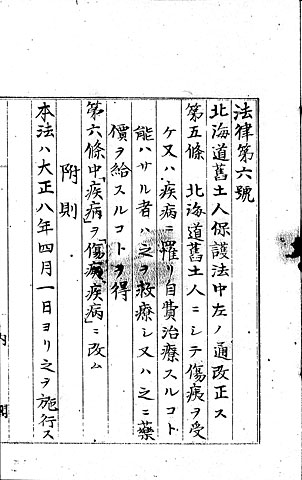 法律第六號
北海道舊土人保護法中左ノ通改正ス
第五條　北海道舊土人ニシテ傷痍ヲ受
ケ又ハ疾病ニ罹リ自費治療スルコト
能ハサル者ハ之ヲ救療シ又ハ之ニ藥
價ヲ給スルコトヲ得
第六條中「疾病」ヲ「傷痍、疾病」ニ改ム
附則
本法ハ大正八年四月一日ヨリ之ヲ施行ス
内閣